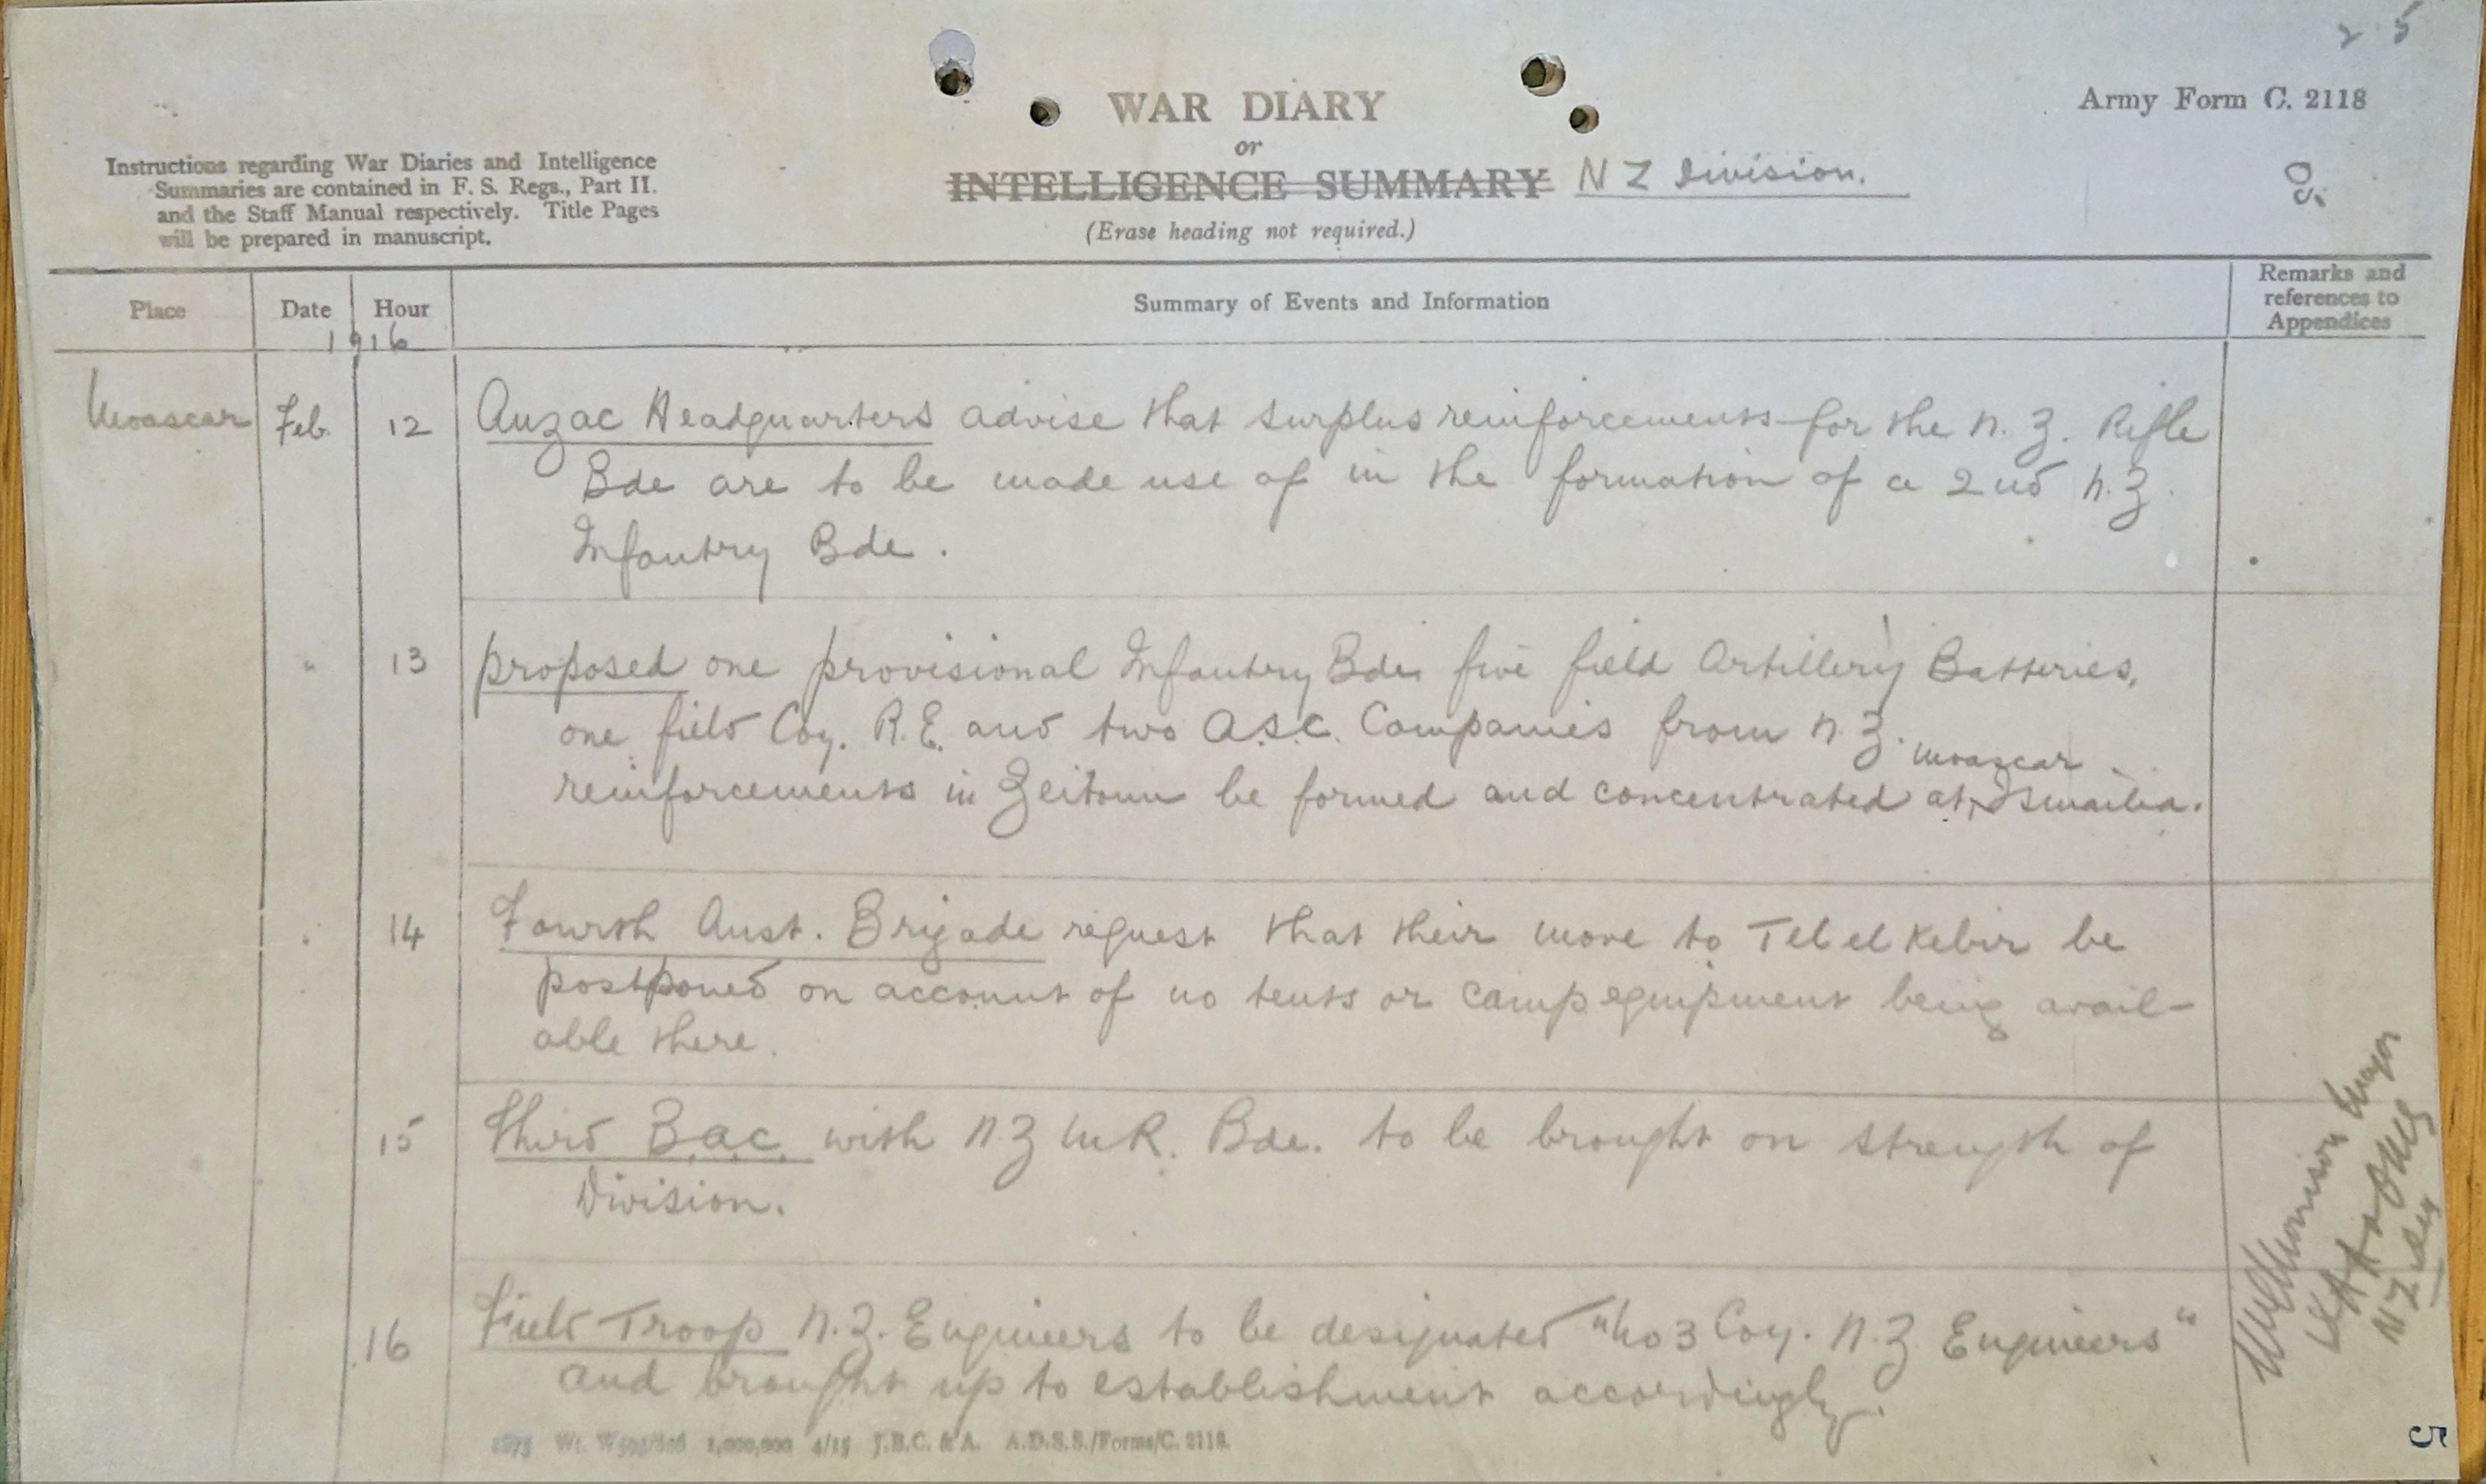 2 5
WAR DIARY
Army Form C. 2118
or
INTELLIGENCE SUMMARY N Z Division.
(Erase heading not required.)
Instructions regarding War Diaries and Intelligence
Summaries are contained in F. S. Regs., Part II.
and the Staff Manual respectively. Title Pages
will be prepared in manuscript.
Place Date Hour Summary of Events and Information Remarks and
references to
Appendices
1916
Moascar Feb. 12 Anzac Headquarters advise that surplus reinforcements for the N. Z. Rifle
Bde are to be made use of in the formation of a 2nd N.Z.
Infantry Bde.
" 13 proposed one provisional Infantry Bde, five field Artillery Batteries,
one field Coy. R.E. and two A.S.C. Companies from N Z.
moascar
reinforcements in Zeitoun be formed and concentrated at Ismailia.
" 14 Fourth Aust. Brigade request that their move to Tel el Kebir be
postponed on account of no tents or camp equipment being avail-
able there.
15 Third B.A.C. with N Z M R. Bde. to be brought on strength of
Division.
16 Field Troop N.Z. Engineers to be designated "No 3 Coy. N.Z Engineers"
and brought up to establishment accordingly.
Major
N Z Div
1,000,000 4/15 J.B.C. & A. A.D.S.S./Forms/C. 2118.
5